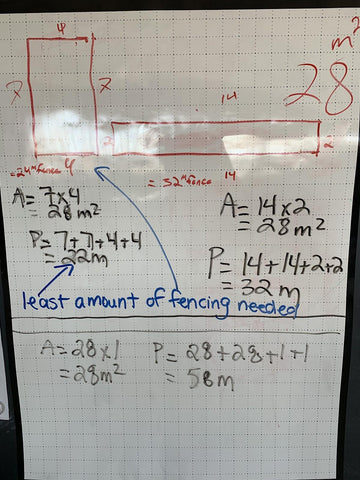 4
m²
28
7
7
14
2
2
4
14
= 32 m fence
A = 7x4
= 28 m²
P = 7+7+4+4
= 22m
A = 14x2
= 28m²
P = 14+14+2+2
= 32 m
least amount of fencing needed
A = 28x1
= 28m²
P = 28+28+1+1
= 58m